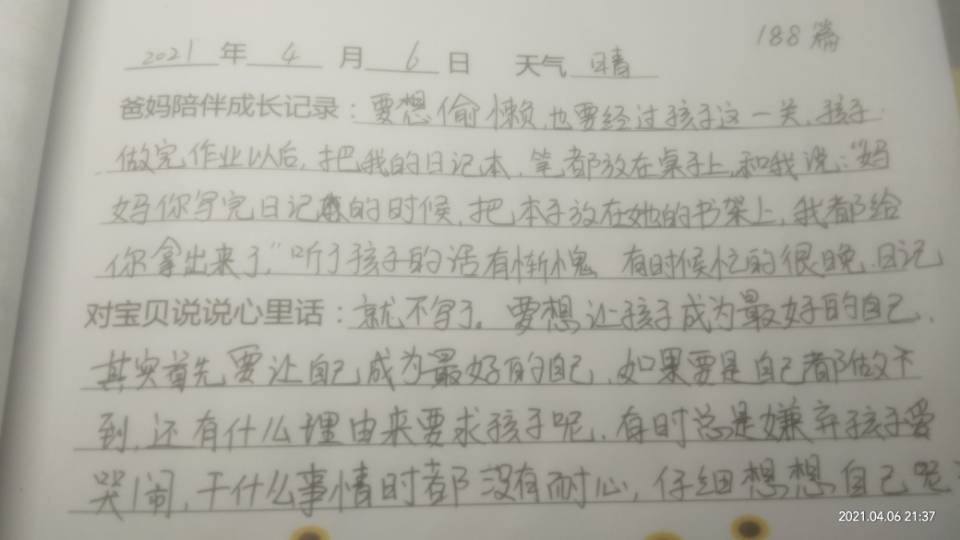 188篇
2021年4月6日 天气晴
爸妈陪伴成长记录：要想偷懒也要经过孩子这一关，孩子
做完作业以后，把我的日记本，笔都放在桌子上，和我说：“妈
妈你写完日记的时候，把本子放在她的书架上，我都给
你拿出来了”听了孩子的话有惭愧 有时候忙的很晚，日记
对宝贝说说心里话：就不写了。要想让孩子成为最好的自己，
其实首先要让自己成为最好的自己，如果要是自己都做不
到，还有什么理由来要求孩子呢，有时总是嫌弃孩子爱
哭闹，干什么事情时都没有耐心，仔细想想自己呢
2021.04.06 21:37